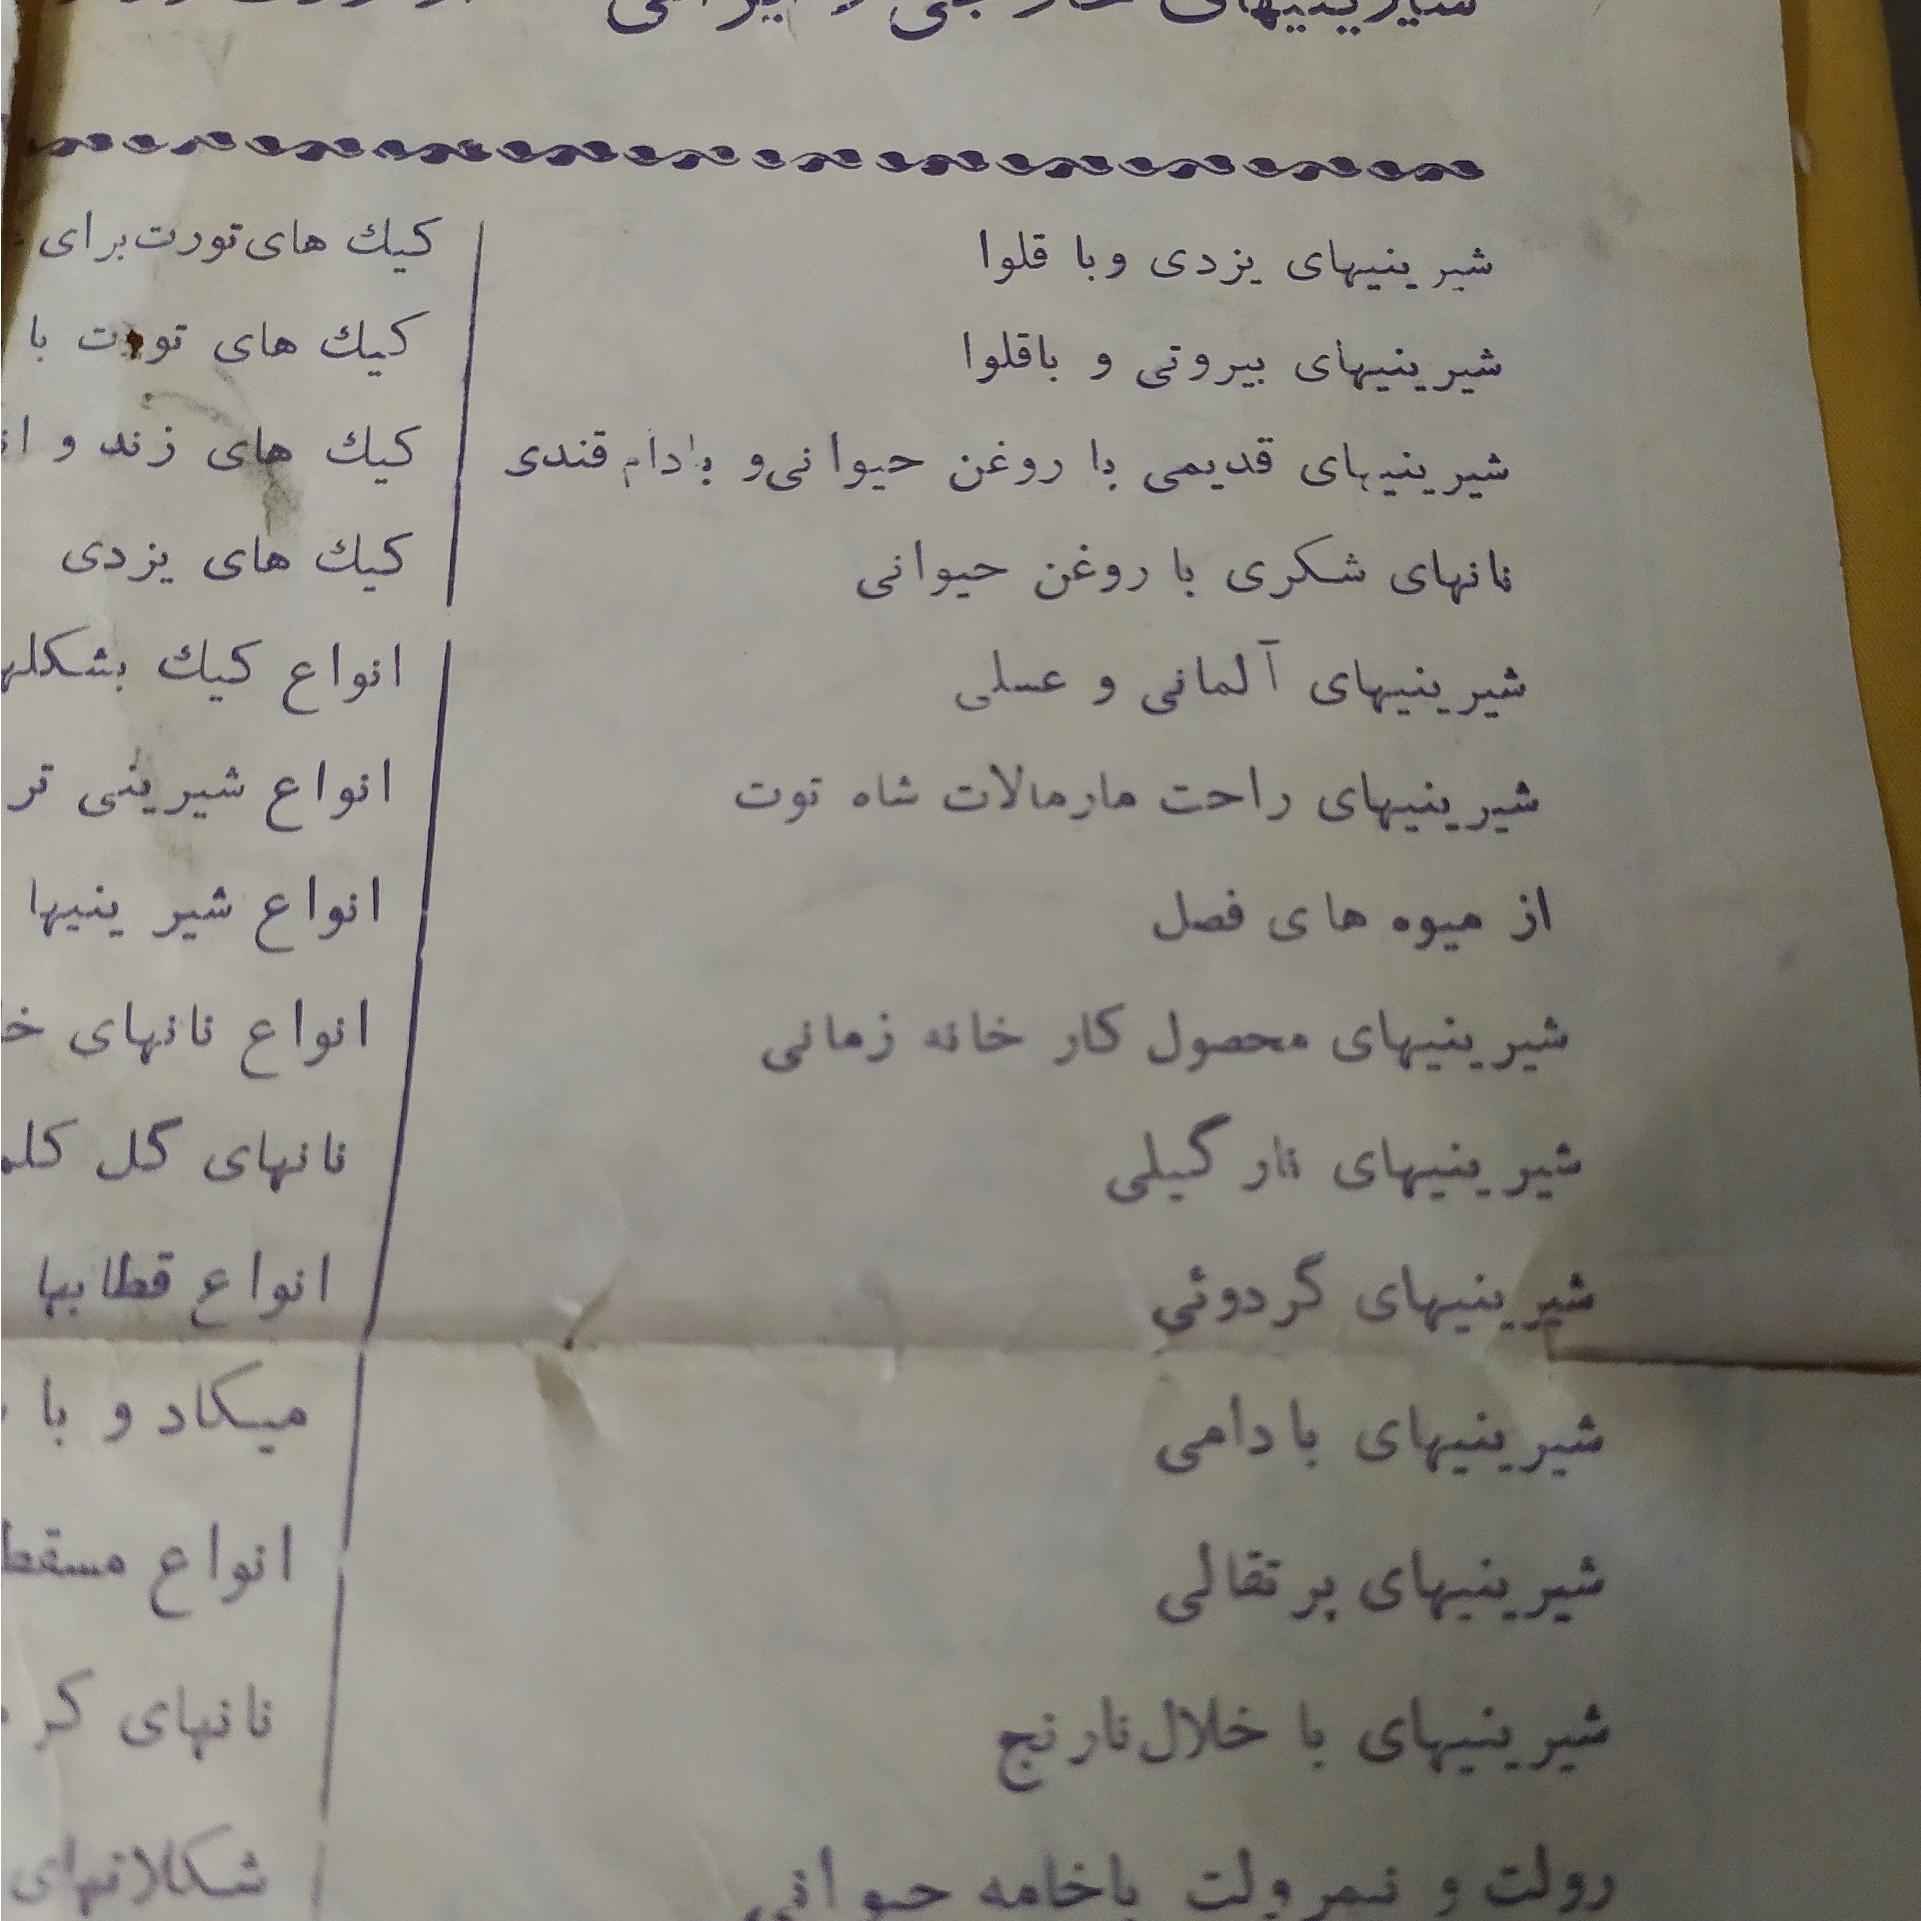 شیرینیهای خارجی و ایرانی
شیرینیهای یزدی وبا قلوا
شیرینیهای بیروتی و باقلوا
شیرینیهای قدیمی با روغن حیوانی و بادام قندی
نانهای شکری با روغن حیوانی
شیرینیهای آلمانی و عسلی
شیرینیهای راحت مارمالات شاه توت
از میوه های فصل
شیرینیهای محصول کار خانه زمانی
شیرینیهای نار گیلی
شیرینیهای گردوئی
شیرینیهای بادامی
شیرینیهای پرتقالی
شیرینیهای با خلال نارنج
رولت و نیمرولت باخامه حیوانی
کیك های تورت برای
کیك های تورت با
کیك های زند و
کیك های یزدی
انواع کیك
انواع شیرینی تر
انواع شیرینیها
انواع نانهای
نانهای گل
انواع قطابها
میکادو با
انواع
نانهای
شکلاتهای